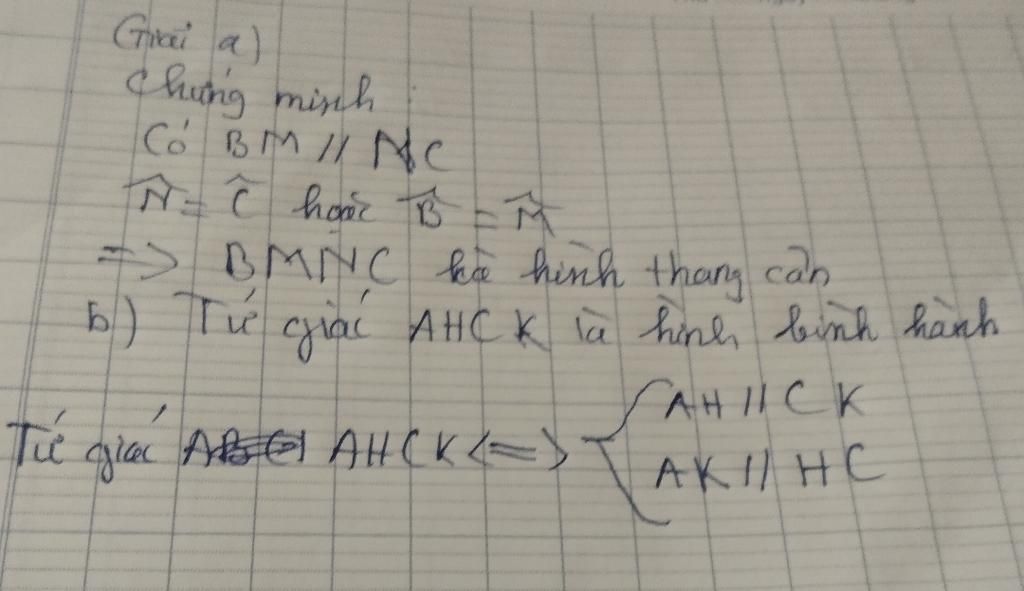 Giải a)
Chứng minh :
Có BM // NC
N̂ = Ĉ hoặc B̂ = M̂
=> BMNC là hình thang cân
b) Tứ giác AHCK là hình bình hành
Tứ giác AHCK <=> { AH // CK
AK // HC